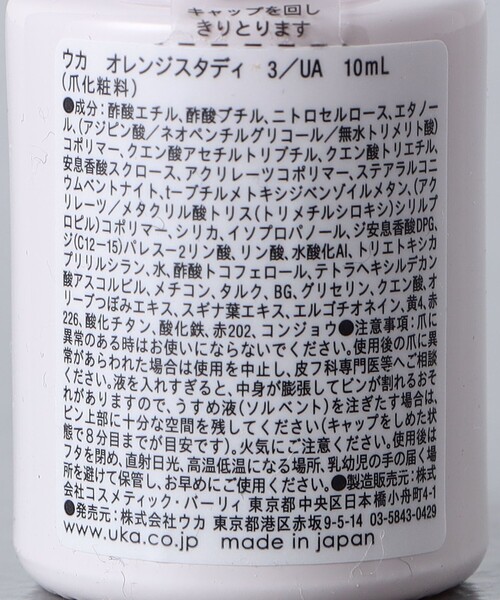 キャップを回し
きりとります
ウカ オレンジスタディ 3/UA 10mL
(爪化粧料)
●成分:酢酸エチル、酢酸ブチル、ニトロセルロース、エタノー
ル、(アジピン酸/ネオペンチルグリコール/無水トリメリト酸)
コポリマー、クエン酸アセチルトリブチル、クエン酸トリエチル、
安息香酸スクロース、アクリレーツコポリマー、ステアラルコニ
ウムベントナイト、t-ブチルメトキシジベンゾイルメタン、(アク
リレーツ/メタクリル酸トリス(トリメチルシロキシ)シリルプ
ロピル)コポリマー、シリカ、イソプロパノール、ジ安息香酸DPG、
ジ(C12-15)パレス-2リン酸、リン酸、水酸化Al、トリエトキシカ
プリリルシラン、水、酢酸トコフェロール、テトラヘキシルデカン
酸アスコルビル、メチコン、タルク、BG、グリセリン、クエン酸、オ
リーブつぼみエキス、スギナ葉エキス、エルゴチオネイン、黄4、赤
226、酸化チタン、酸化鉄、赤202、コンジョウ●注意事項:爪に
異常のある時はお使いにならないでください。使用後の爪に異
常があらわれた場合は使用を中止し、皮フ科専門医等へご相談
ください。液を入れすぎると、中身が膨張してビンが割れるおそ
れがありますので、うすめ液(ソルベント)を注ぎたす場合は、
ビン上部に十分な空間を残してください(キャップをしめた状
態で8分目までが目安です)。火気にご注意ください。使用後は
フタを閉め、直射日光、高温低温になる場所、乳幼児の手の届く場
所を避けて保管し、お早めにご使用ください。●製造販売元:株式
会社コスメティック・バーリィ 東京都中央区日本橋小舟町4-1
●発売元:株式会社ウカ 東京都港区赤坂9-5-14 03-5843-0429
www.uka.co.jp made in japan